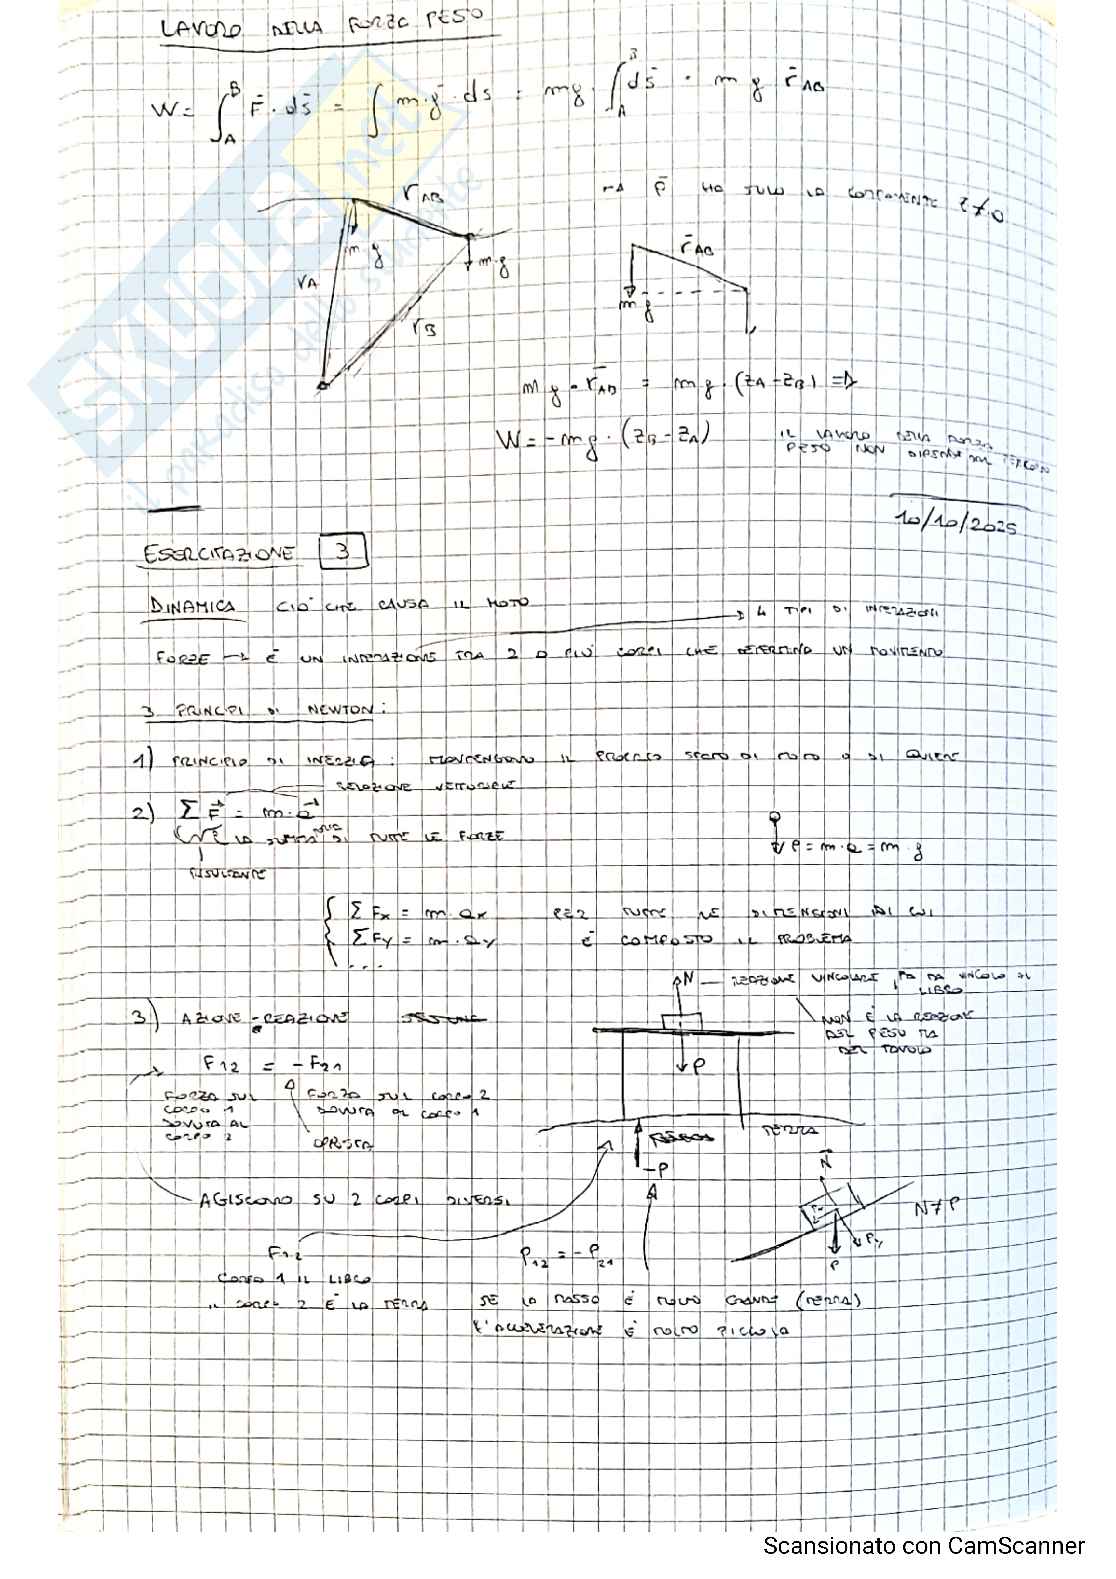 LAVORO DELLA FORZA PESO
W = ∫_A^B F̄ · ds̄ = ∫ m·ḡ · ds = mg · ∫_A^B ds̄ = m g r̄_AB
→ P̄ HA SOLO LA COMPONENTE z≠0
r_AB
m g
m·g
r_A
r_B
r̄_AB
m g
m g · r̄_AB = m g · (z_A - z_B) ⇒
W = - m g · (z_B - z_A)
IL LAVORO DELLA FORZA
PESO NON DIPENDE DAL PERCORSO
10/10/2025
ESERCITAZIONE 3
DINAMICA CIO' CHE CAUSA IL MOTO
→ 4 TIPI DI INTERAZIONI
FORZE → È UN INTERAZIONE TRA 2 O PIÙ CORPI CHE DETERMINA UN MOVIMENTO
3 PRINCIPI DI NEWTON:
1) PRINCIPIO DI INERZIA: MANTENGONO IL PROPRIO STATO DI MOTO O DI QUIETE
RELAZIONE VETTORIALE
2) Σ F⃗ = m·a⃗
È LA SOMMA DI TUTTE LE FORZE
RISULTANTE
P = m·a = m·g
{ Σ Fx = m·ax PER TUTTE LE DIMENSIONI DI CUI
{ Σ Fy = m·ay È COMPOSTO IL PROBLEMA
...
N — REAZIONE VINCOLARE, FA DA VINCOLO AL
LIBRO
3) AZIONE-REAZIONE
NON È LA REAZIONE
DEL PESO MA
DEL TAVOLO
F12 = - F21
P
FORZA SUL
CORPO 1
DOVUTA AL
CORPO 2
FORZA SUL CORPO 2
DOVUTA AL CORPO 1
OPPOSTA
TERRA
-P
AGISCONO SU 2 CORPI DIVERSI
N⃗
N≠P
Py
P
F12
P12 = - P21
CORPO 1 IL LIBRO
IL CORPO 2 È LA TERRA
SE LA MASSA È MOLTO GRANDE (TERRA)
L'ACCELERAZIONE È MOLTO PICCOLA
SKUOLA.net
il paradiso dello studente
Scansionato con CamScanner